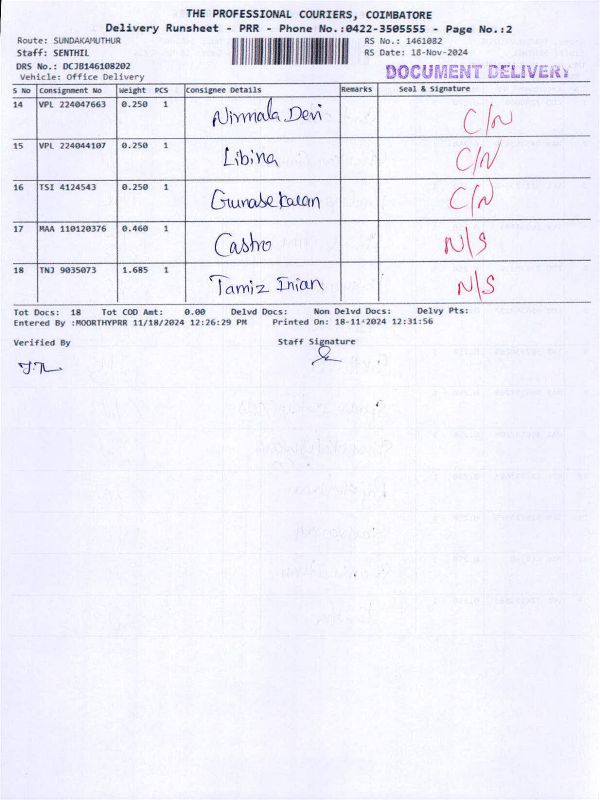 THE PROFESSIONAL COURIERS, COIMBATORE
Delivery Runsheet - PRR - Phone No.:0422-3505555 - Page No.:2
Route: SUNDAKAMUTHUR RS No.: 1461082
Staff: SENTHIL RS Date: 18-Nov-2024
DRS No.: DCJB146108202
Vehicle: Office Delivery
DOCUMENT DELIVERY
S No Consignment No Weight PCS Consignee Details Remarks Seal & Signature
14 VPL 224047663 0.250 1 Nirmala Devi C/N
15 VPL 224044107 0.250 1 Libina C/N
16 TSI 4124543 0.250 1 Gunasekaran C/N
17 MAA 110120376 0.460 1 Castro N/S
18 TNJ 9035073 1.685 1 Tamiz Inian N/S
Tot Docs: 18 Tot COD Amt: 0.00 Delvd Docs: Non Delvd Docs: Delvy Pts:
Entered By :MOORTHYPRR 11/18/2024 12:26:29 PM Printed On: 18-11-2024 12:31:56
Verified By Staff Signature